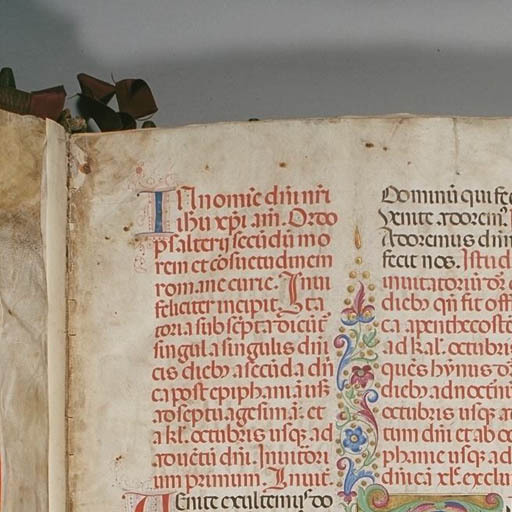 In nomie dni nri
ihu xpi am. Ordo
psaltery secudu mo
rem et cosuetudinem
romane curie. Invi
feliciter incipit. Ita
toria subscpta dicut
singula singulis dni
cis dieb a secuda dn
ca post epiphani usq
ad septuagesima. et
a kl. octubris usq ad
adventu dni. Invitori
um primum. Invit.
Venite exultemus do
Dominu qui fec
Venite adorem
Adoremus dnm
fecit nos. Istud
invitatoriu
dieb qn fit off
ca apenthecoste
ad kal. octubris
ques hymnus
dieb ad noctur
octubris usq a
tum dni et ab oc
phanie usq ad
dnica xl. exclu